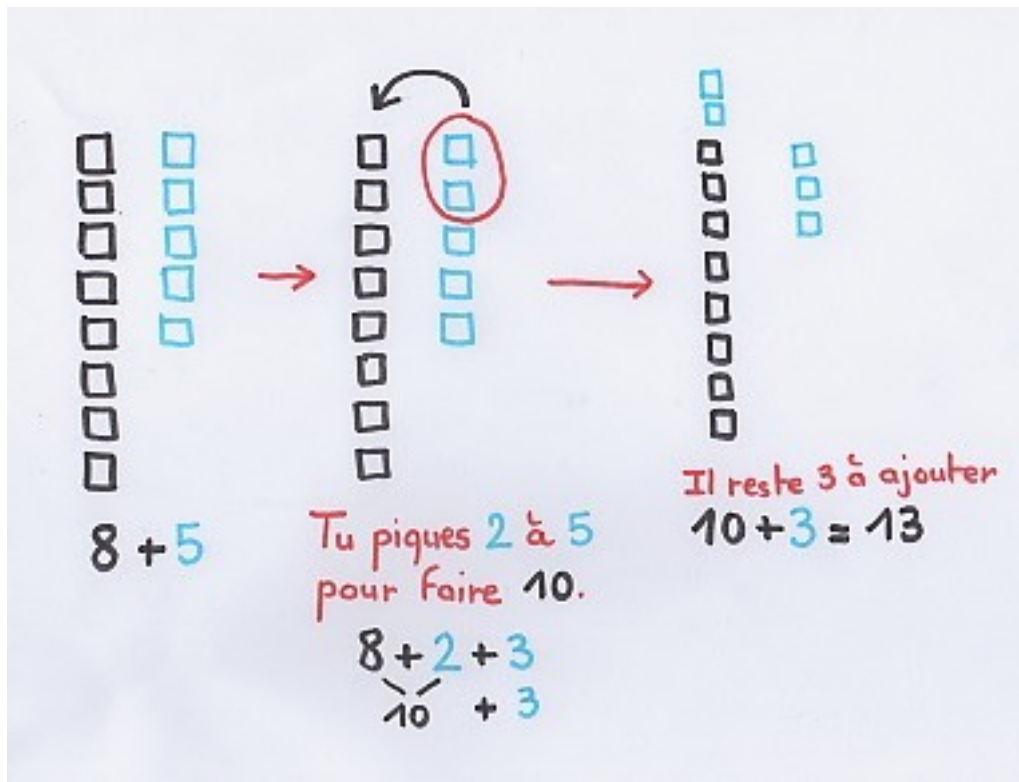 8 + 5
Tu piques 2 à 5
pour faire 10.
8 + 2 + 3
10 + 3
Il reste 3 à ajouter
10 + 3 = 13